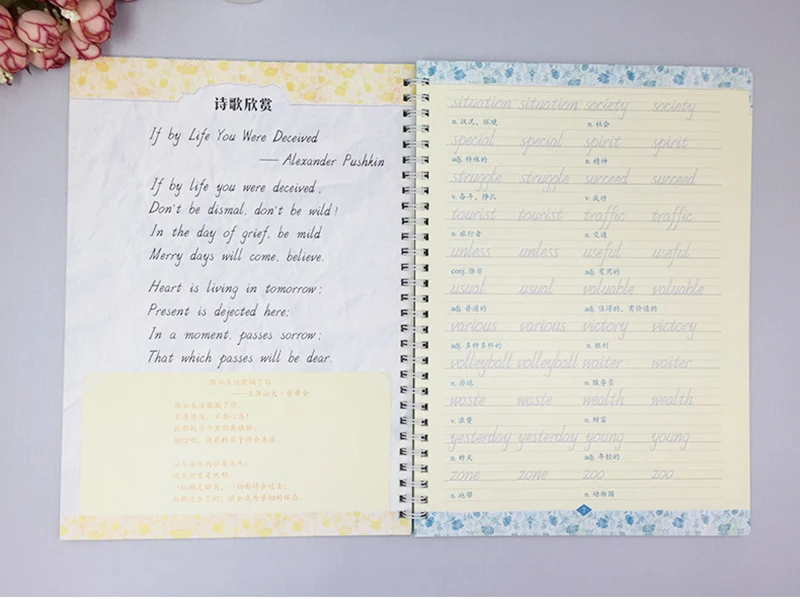 诗歌欣赏
If by Life You Were Deceived
—— Alexander Pushkin
If by life you were deceived,
Don't be dismal, don't be wild!
In the day of grief, be mild
Merry days will come, believe.
Heart is living in tomorrow;
Present is dejected here;
In a moment, passes sorrow;
That which passes will be dear.
假如生活欺骗了你
——亚历山大·普希金
假如生活欺骗了你,
不要悲伤，不要心急!
situation situation society society
n. 状况，环境 n. 社会
special special spirit spirit
adj. 特殊的 n. 精神
struggle struggle succeed succeed
v. 奋斗，挣扎 v. 成功
tourist tourist traffic traffic
n. 旅行者 n. 交通
unless unless useful useful
conj. 除非 adj. 有用的
usual usual valuable valuable
adj. 普通的 adj. 值得的，有价值的
various various victory victory
adj. 多种多样的 n. 胜利
volleyball volleyball waiter waiter
n. 排球 n. 服务员
waste waste wealth wealth
v. 浪费 n. 财富
yesterday yesterday young young
n. 昨天 adj. 年轻的
zone zone zoo zoo
n. 地带 n. 动物园
7